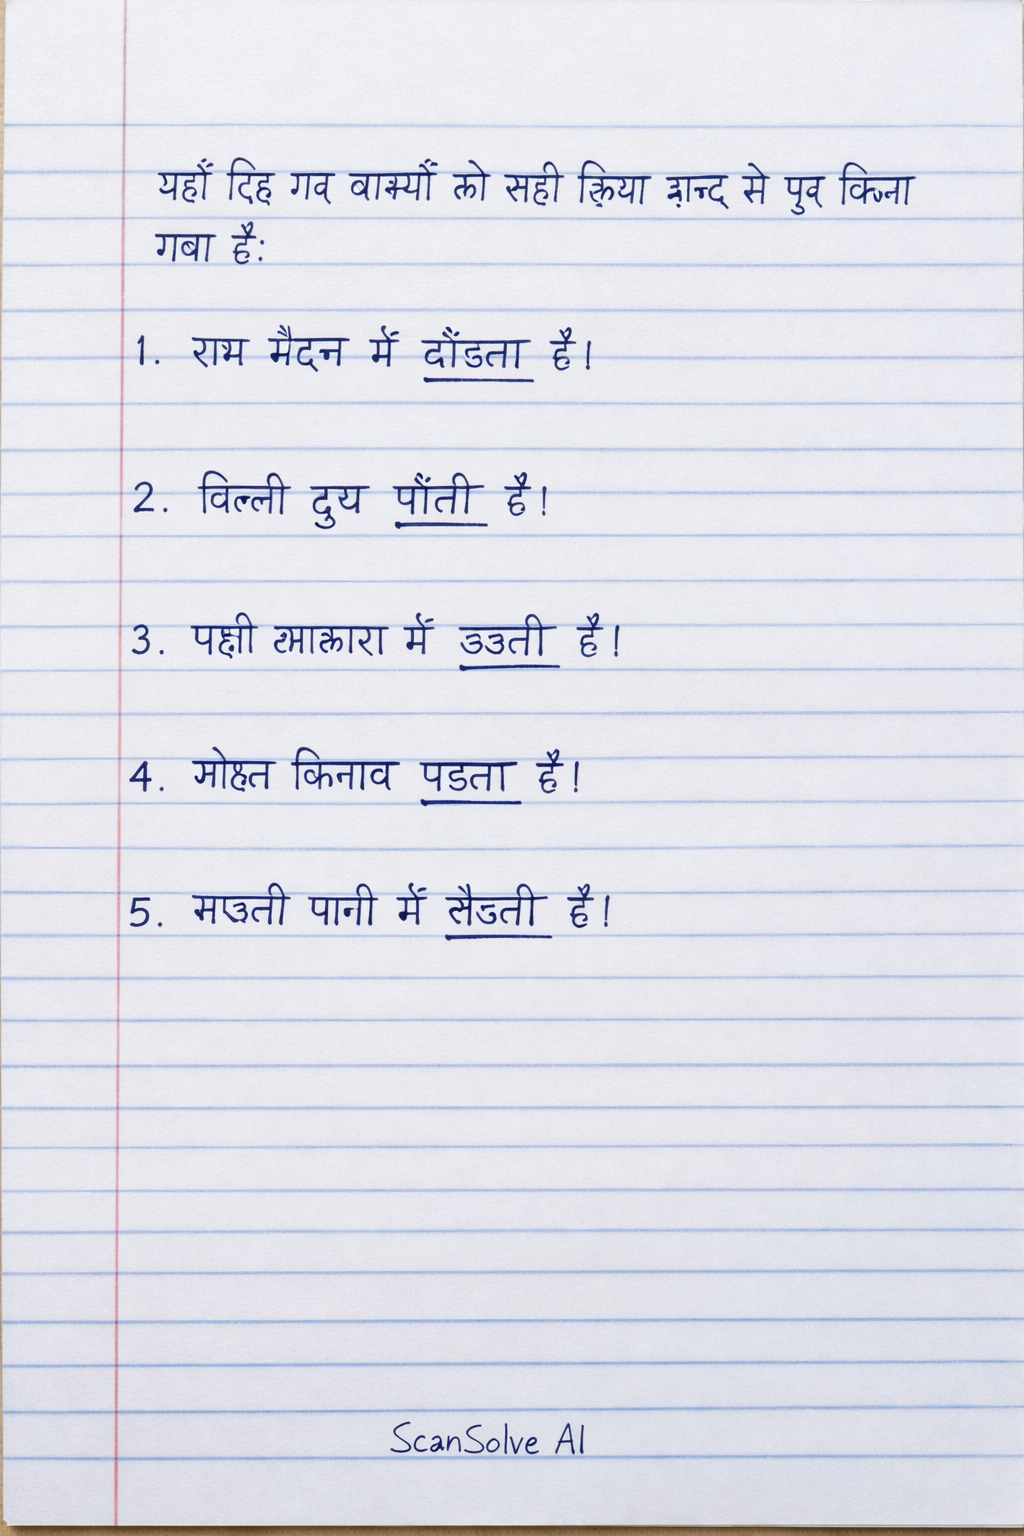 यहाँ दिह गव वाक्यों को सही क्रिया शब्द से पुव किना
गबा है:
1. राम मैदन में दौंडता है।
2. विल्ली दुय पौंती है!
3. पक्षी में उउती है!
4. मोहत किनाव पडता है!
5. मछती पानी में तैडती है!
ScanSolve AI